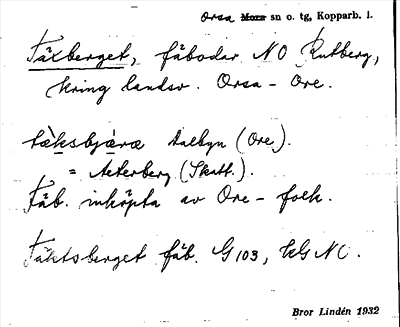 Orsa Mora sn o. tg, Kopparb. l.
Täxberget, fäbodar NO Rutberg,
kring landsv. Orsa - Ore.
tæ̀ksbjæræ Dalbyn (Ore).
= Aekerberg (Skatt.).
Fäb. inköpta av Ore-folk.
Täktsberget fäb. G 103, kG NO.
Bror Lindén 1932